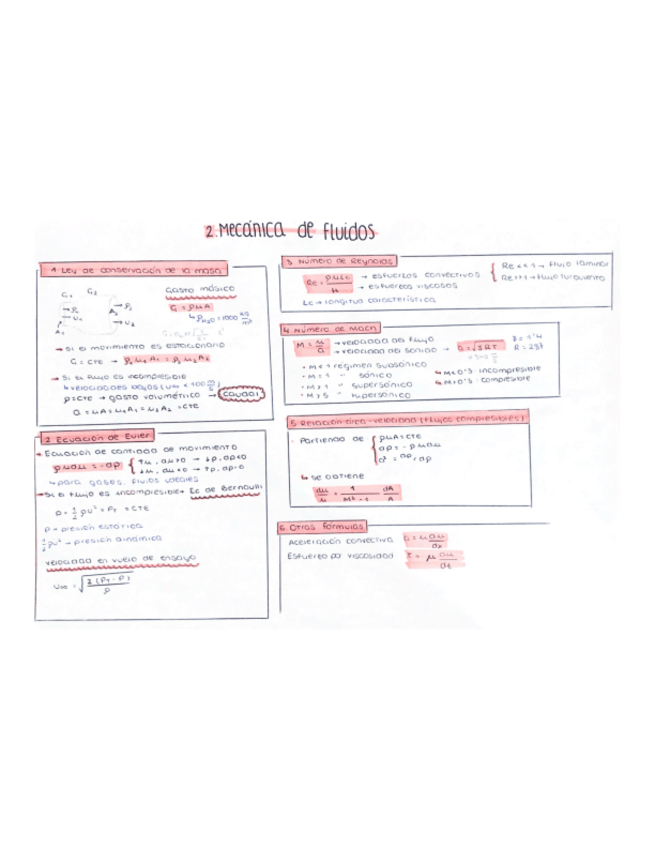 2. Mecánica de Fluidos
1 Ley de conservación de la masa
G₁ G₂
Gasto másico
G = ρuA
↳ ρH₂O = 1000 kg/m³
→ρ₁ →u₁ A₁
A₂ →ρ₂ →u₂
→ Si el movimiento es estacionario
G = cte → ρ₁u₁A₁ = ρ₂u₂A₂
→ Si el flujo es incompresible
↳ velocidades bajas (u∞ < 100 m/s)
ρ=cte → gasto volumétrico → caudal
Q = uA = u₁A₁ = u₂A₂ = cte
2 Ecuación de Euler
→ Ecuación de cantidad de movimiento
ρudu = -dp { ↑u, du>0 → ↓p, dp<0
↓u, du<0 → ↑p, dp>0
↳ para gases, fluidos ideales
→ Si el flujo es incompresible → Ec de Bernoulli
p + ½ρu² = PT = cte
p = presión estática
½ρu² → presión dinámica
velocidad en vuelo de ensayo
u∞ = √(2(PT - P)/ρ)
3 Número de Reynolds
Re = ρuLc/μ → esfuerzos convectivos
→ esfuerzos viscosos
{ Re << 1 → flujo laminar
Re >> 1 → flujo turbulento
Lc → longitud característica
4 Número de Mach
M = u/a → velocidad del flujo
→ velocidad del sonido → a = √γRT
γ = 1'4
R = 287
· M < 1 régimen subsónico
· M = 1 " sónico
· M > 1 " supersónico
· M > 5 " hipersónico
↳ M<0'3 incompresible
↳ M>0'3 compresible
5 Relación área-velocidad (flujos compresibles)
Partiendo de { ρuA = cte
dp = -ρudu
↳ se obtiene
du/u = 1/(M²-1) dA/A
6 Otras fórmulas
Aceleración convectiva a = u du/dx
Esfuerzo por viscosidad τ = μ du/dz